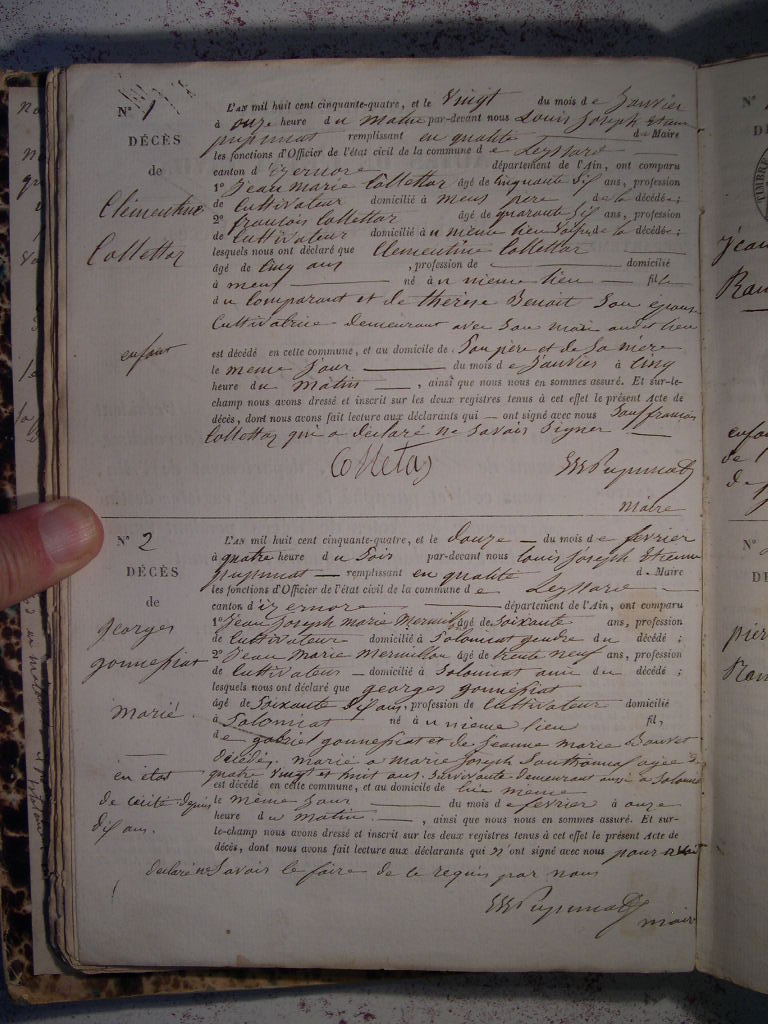 N° 1
DÉCÈS
de
Clémentine
Collettaz
enfant
L'AN mil huit cent cinquante-quatre, et le vingt du mois de Janvier
à onze heure du matin par-devant nous Louis Joseph Etienne
pupunat remplissant en qualité de Maire
les fonctions d'Officier de l'état civil de la commune de Leyssard
canton d'izernore département de l'Ain, ont comparu
1° Jean Marie Collettaz âgé de cinquante six ans, profession
de Cultivateur domicilié à meuf père de la décédée;
2° francois Collettaz âgé de quarante six ans, profession
de Cultivateur domicilié à u même lieu de la décédée;
lesquels nous ont déclaré que Clementine Collettaz
âgé de cinq ans, profession de domicilié
à meuf né à u même lieu fille
du Comparant et de thérèse Benoit son épouse
Cultivatrice demeurant avec son mari audit lieu
est décédé en cette commune, et au domicile de son père et de sa mère
le même jour du mois de janvier à cinq
heure du matin, ainsi que nous nous en sommes assuré. Et sur-le-
champ nous avons dressé et inscrit sur les deux registres tenus à cet effet le présent Acte de
décès, dont nous avons fait lecture aux déclarants qui ont signé avec nous sauf francois
Collettaz qui a déclaré ne savoir signer
Colletaz
Pupunat
maire
N° 2
DÉCÈS
de
georges
gonnefiat
marié
en état
de cécité depuis
dix ans.
L'AN mil huit cent cinquante-quatre, et le douze du mois de fevrier
à quatre heure du soir par-devant nous louis joseph Etienne
pupunat remplissant en qualité de Maire
les fonctions d'Officier de l'état civil de la commune de Leyssard
canton d'izernore département de l'Ain, ont comparu
1° Jean Joseph marie Mermillon âgé de soixante ans, profession
de Cultivateur domicilié à Solomiat gendre du décédé;
2° Jean Marie Mermillon âgé de trente neuf ans, profession
de Cultivateur domicilié à Solomiat ami du décédé;
lesquels nous ont déclaré que georges gonnefiat
âgé de soixante dix ans, profession de Cultivateur domicilié
à Solomiat né à u même lieu fils
de gabriel gonnefiat et de jeanne marie Bouvet
décédés, marié a marie joseph agée de
quatre vingt et huit ans. Survivante demeurant aussi a Solomiat
est décédé en cette commune, et au domicile de lui même
le même jour du mois de fevrier à onze
heure du matin, ainsi que nous nous en sommes assuré. Et sur-
le-champ nous avons dressé et inscrit sur les deux registres tenus à cet effet le présent Acte de
décès, dont nous avons fait lecture aux déclarants qui n'ont signé avec nous pour avoir
déclaré ne savoir le faire de ce requis par nous
Pupunat
maire